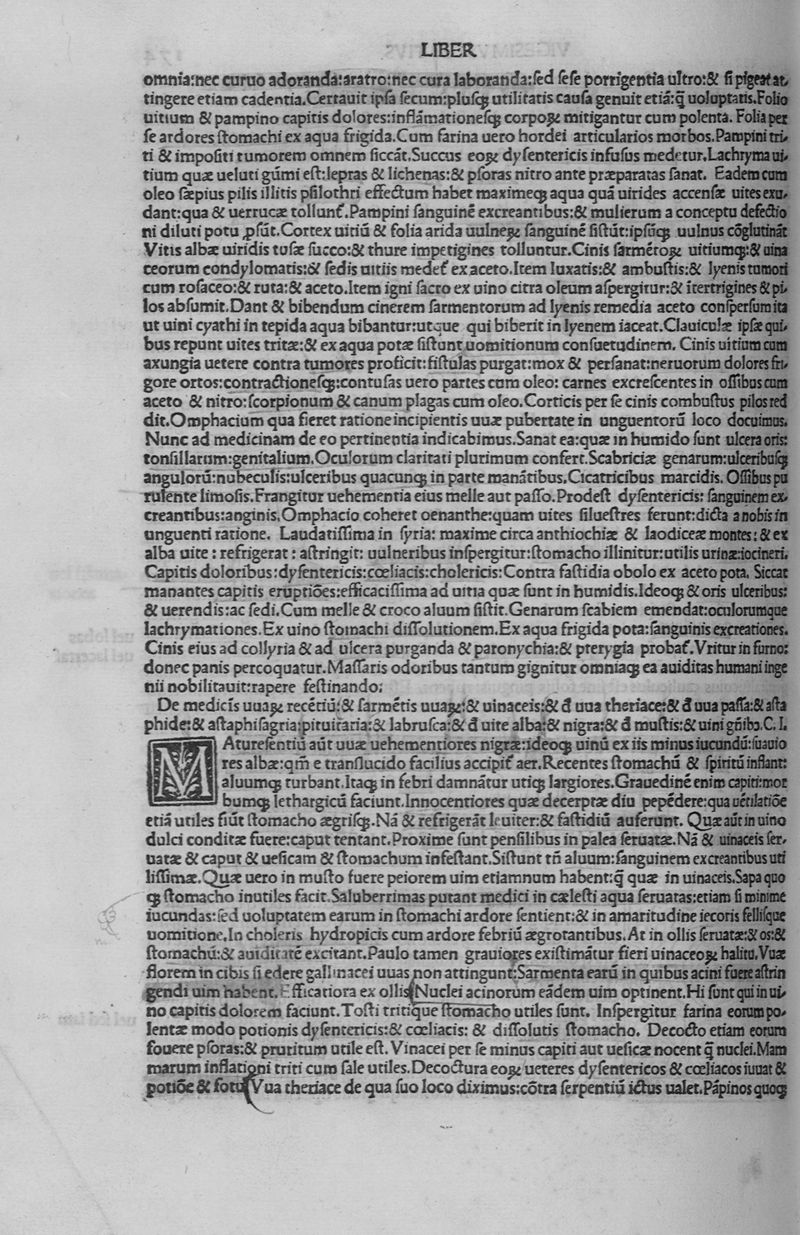 LIBER
omnia:nec curuo adoranda:aratro:nec cura laboranda:ſed ſeſe porrigentia ultro:& ſi pigeat at,
tingere etiam cadentia.Certauit ipſa ſecum:pluſꝗ utilitatis cauſa genuit etiã:q̃ uoluptatis.Folio
uitium & pampino capitis dolores:inflãmationeſꝗ corpoꝝ mitigantur cum polenta. Folia per
ſe ardores ſtomachi ex aqua frigida.Cum farina uero hordei articularios morbos.Pampini tri,
ti & impoſiti tumorem omnem ſiccãt.Succus eoꝝ dyſentericis infuſus medetur.Lachryma ui,
tium quæ ueluti gũmi eſt:lepras & lichenas:& pſoras nitro ante præparatas ſanat. Eadem cum
oleo ſæpius pilis illitis pſilothri effectum habet maximeꝗ aqua quã uirides accenſæ uites exu,
dant:qua & uerrucæ tollunt̃.Pampini ſanguinẽ excreantibus:& mulierum a conceptu defectio
ni diluti potu ꝓſũt.Cortex uitiũ & folia arida uulneꝝ ſanguinẽ ſiſtũt:ipſũꝗ uulnus cõglutinãt
Vitis albæ uiridis tuſæ ſucco:& thure impetigines tolluntur.Cinis ſarmẽtoꝝ uitiumꝗ:& uina
ceorum condylomatis:& ſedis uitiis medet̃ ex aceto.Item luxatis:& ambuſtis:& lyenis tumori
cum roſaceo:& ruta:& aceto.Item igni ſacro ex uino citra oleum aſpergitur:& ĩtertrigines & pi,
los abſumit.Dant & bibendum cinerem ſarmentorum ad lyenis remedia aceto conſperſum ita
ut uini cyathi in tepida aqua bibantur:utque qui biberit in lyenem iaceat.Clauiculæ ipſæ qui,
bus repunt uites tritæ:& ex aqua potæ ſiſtunt uomitionum conſuetudinem. Cinis uitium cum
axungia uetere contra tumores proficit:fiſtulas purgat:mox & perſanat:neruorum dolores fri,
gore ortos:contractioneſꝗ:contuſas uero partes cum oleo: carnes excreſcentes in oſſibus cum
aceto & nitro:ſcorpionum & canum plagas cum oleo.Corticis per ſe cinis combuſtus pilos red
dit.Omphacium qua fieret ratione incipientis uuæ pubertate in unguentorũ loco docuimus.
Nunc ad medicinam de eo pertinentia indicabimus.Sanat ea:quæ in humido ſunt ulcera oris:
tonſillarum:genitalium.Oculorum claritati plurimum confert.Scabriciæ genarum:ulceribuſꝗ
angulorũ:nubeculis:ulceribus quacunꝗ in parte manãtibus.Cicatricibus marcidis. Oſſibus pu
rulente limoſis.Frangitur uehementia eius melle aut paſſo.Prodeſt dyſentericis: ſanguinem ex,
creantibus:anginis.Omphacio coheret oenanthe:quam uites ſilueſtres ferunt:dicta a nobis in
unguenti ratione. Laudatiſſima in ſyria: maxime circa anthiochiæ & laodiceæ montes: & ex
alba uite : refrigerat : aſtringit: uulneribus inſpergitur:ſtomacho illinitur:utilis urinæ:iocineri.
Capitis doloribus:dyſentericis:cœliacis:cholericis:Contra faſtidia obolo ex aceto pota. Siccat
manantes capitis eruptiões:efficaciſſima ad uitia quæ ſunt in humidis.Ideoꝗ & oris ulceribus:
& uerendis:ac ſedi.Cum melle & croco aluum ſiſtit.Genarum ſcabiem emendat:oculorumque
lachrymationes.Ex uino ſtomachi diſſolutionem.Ex aqua frigida pota:ſanguinis excreationes.
Cinis eius ad collyria & ad ulcera purganda & paronychia:& pterygia probat̃.Vritur in furno:
donec panis percoquatur.Maſſaris odoribus tantum gignitur omniaꝗ ea auiditas humani inge
nii nobilitauit:rapere feſtinando:
De medicis uuaꝝ recẽtiũ:& ſarmẽtis uuaꝝ:& uinaceis:& đ uua theriace:& đ uua paſſa:& aſta
phide:& aſtaphiſagria:pituitaria:& labruſca:& đ uite alba:& nigra:& đ muſtis:& uini gñibꝫ.C. I.
MAtureſentiũ aũt uuæ uehementiores nigræ:ideoꝗ uinũ ex iis minus iucundũ:ſuauio
res albæ:qm̃ e tranſlucido facilius accipit̃ aer.Recentes ſtomachũ & ſpiritũ inflant:
aluumꝗ turbant.Itaꝗ in febri damnãtur utiꝗ largiores.Grauedinẽ enim capiti:mor
bumꝗ lethargicũ faciunt.Innocentiores quæ decerptæ diu pepẽdere:qua uẽtilatiõe
etiã utiles fiũt ſtomacho ægriſꝗ.Nã & refrigerãt leuiter:& faſtidiũ auferunt. Quæ aũt in uino
dulci conditæ fuere:caput tentant.Proxime ſunt penſilibus in palea ſeruatæ.Nã & uinaceis ſer,
uatæ & caput & ueſicam & ſtomachum infeſtant.Siſtunt tñ aluum:ſanguinem excreantibus uti
liſſimæ.Quæ uero in muſto fuere peiorem uim etiamnum habent:q̃ quæ in uinaceis.Sapa quo
ꝗ ſtomacho inutiles facit.Saluberrimas putant medici in cæleſti aqua ſeruatas:etiam ſi minime
iucundas:ſed uoluptatem earum in ſtomachi ardore ſentient:& in amaritudine iecoris felliſque
uomitione.In choleris hydropicis cum ardore febriũ ægrotantibus.At in ollis ſeruatæ:& os:&
ſtomachũ:& auiditatẽ excitant.Paulo tamen grauiores exiſtimãtur fieri uinaceoꝝ halitu.Vuæ
florem in cibis ſi edere gallinacei uuas non attingunt:Sarmenta earũ in quibus acini fuere aſtrin
gendi uim habent.Efficatiora ex ollis Nuclei acinorum eãdem uim optinent.Hi ſunt qui in ui,
no capitis dolorem faciunt.Toſti tritique ſtomacho utiles ſunt. Inſpergitur farina eorum po,
lentæ modo potionis dyſentericis:& cœliacis: & diſſolutis ſtomacho. Decocto etiam eorum
fouere pſoras:& pruritum utile eſt. Vinacei per ſe minus capiti aut ueſicæ nocent q̃ nuclei.Mam
marum inflationi triti cum ſale utiles.Decoctura eoꝝ ueteres dyſentericos & cœliacos iuuat &
potiõe & fotu Vua theriace de qua ſuo loco diximus:cõtra ſerpentiũ ictus ualet.Pãpinos quoꝗ